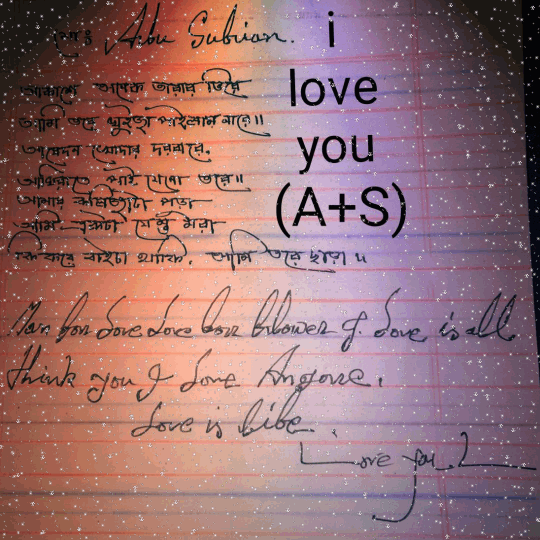 মোঃ Abu Subian.
i
love
you
(A+S)
আকাশে তারার ভিরে
আমি তরে খুইজা পাইলাম নারে॥
আবেদন খোদার দরবারে,
পাই যেনো তরে॥
আমার পড়া
আমি একটা মরা
কি করে বাইচা থাকি, আমি তরে ছাড়া॥
for Love Love for of Love is all
think you I Love Anyone.
Love is life.
Love you